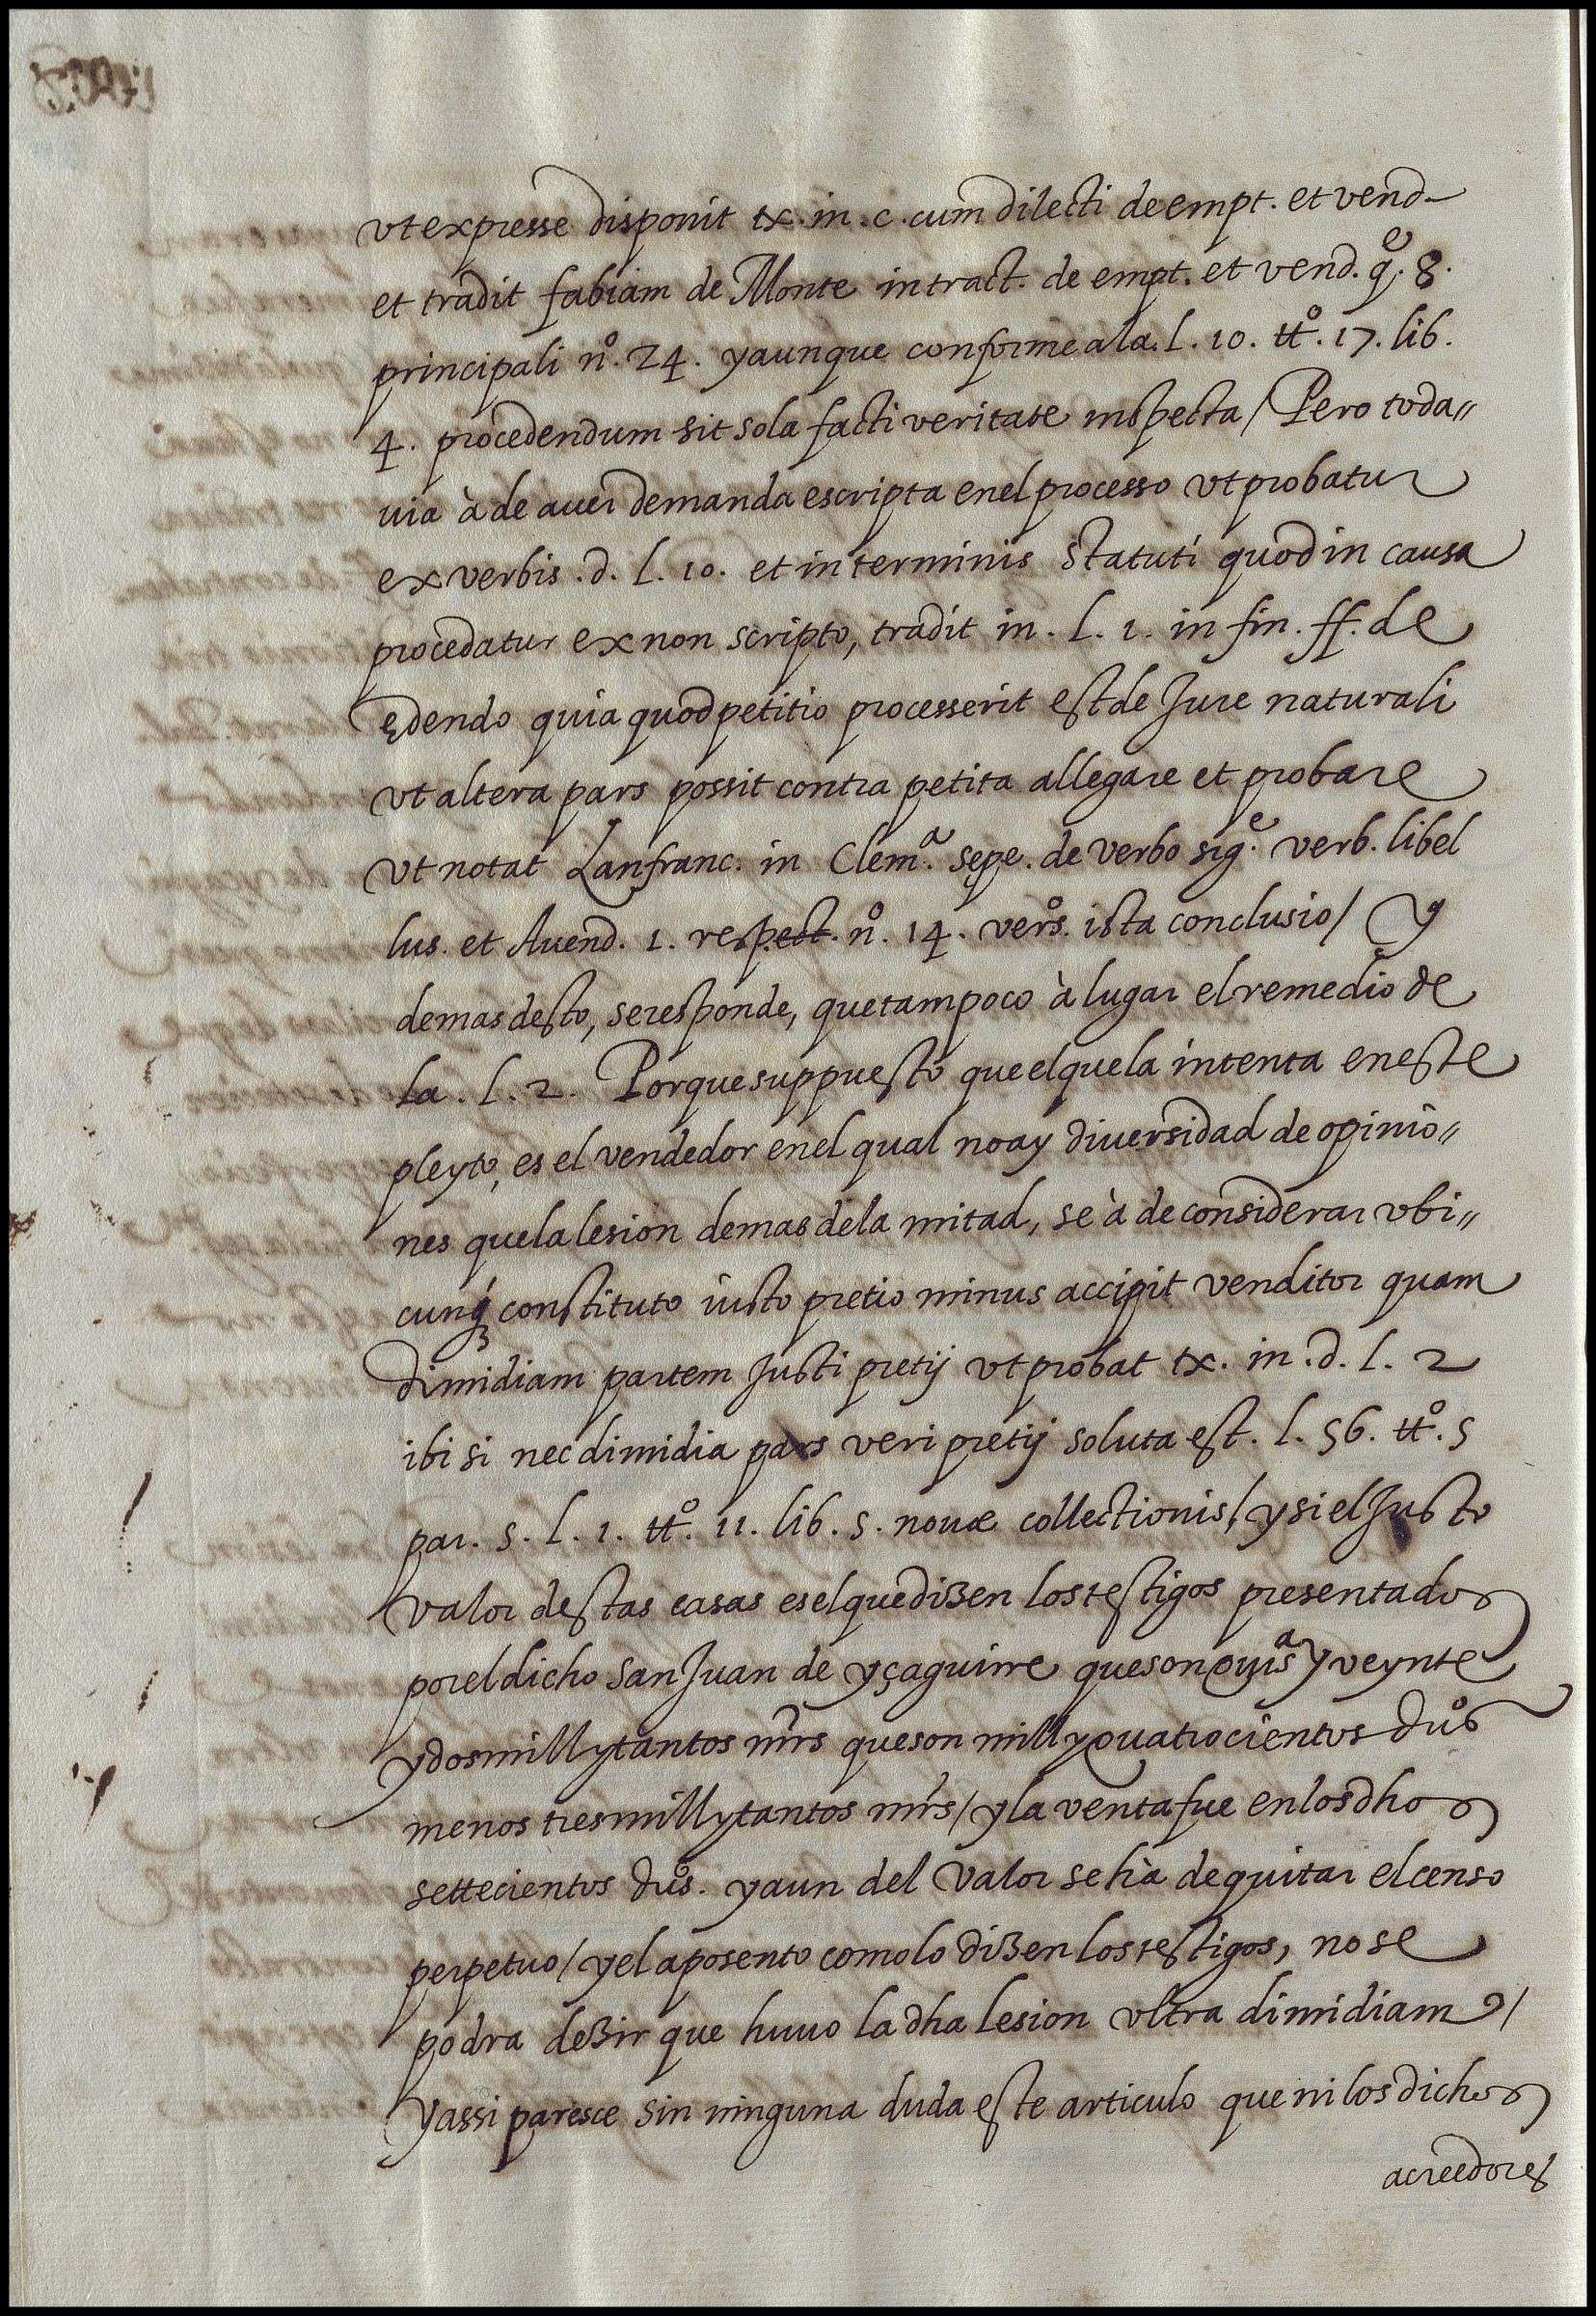 vt expresse disponit tx. in. c. cum dilecti de empt. et vend
et tradit fabiam de Monte in tract. de empt. et vend. q̊e. 8.
principali nº. 24. y aunque conforme a la. l. 10. ttº. 17. lib.
4. procedendum sit sola facti veritate inspecta / Pero toda〃
uia à de auer demanda escripta en el processo vt probatur
ex verbis. d. l. 10. et in terminis statuti quod in causa
procedatur ex non scripto, tradit in. l. 1. in fin. ff. de
ędendo quia quod petitio processerit est de Jure naturali
vt altera pars possit contra petita allegare et probare
vt notat Lanfranc. in Clemª. sepe. de verbo sigᵉ. verb. libel
lus. et Auend. 1. respect. nº. 14. versº. ista conclusio / y
demas desto, se responde, que tampoco à lugar el remedio de
la. l. 2. Porque suppuesto que el que la intenta en este
pleyto, es el vendedor en el qual no ay diuersidad de opinio〃
nes que la lesion de mas de la mitad, se à de considerar vbi〃
cunq́ȝ constituto iusto pretio minus accipit venditor quam
dimidiam partem Justi pretij vt probat tx. in. d. l. 2
ibi si nec dimidia pars veri pretij soluta est. l. 56. ttº. 5
par. 5. l. 1. ttº. 11. lib. 5. nouæ collectionis / y si el Justo
valor destas casas es el que dizen los testigos presentados
por el dicho San Juan de yçaguirre que son y veynte
y dos mill y tantos mrs̄ que son mill y quatrocientos duºs
menos tres mill y tantos mrs̄ / y la venta fue en los dhos
settecientos duºs. y aun del valor se hà de quitar el censo
perpetuo / y el aposento como lo dizen los testigos, no se
podra dezir que huuo la dha lesion vltra dimidiam /
y assi paresce sin ninguna duda este articulo que ni los dichos
acreedores